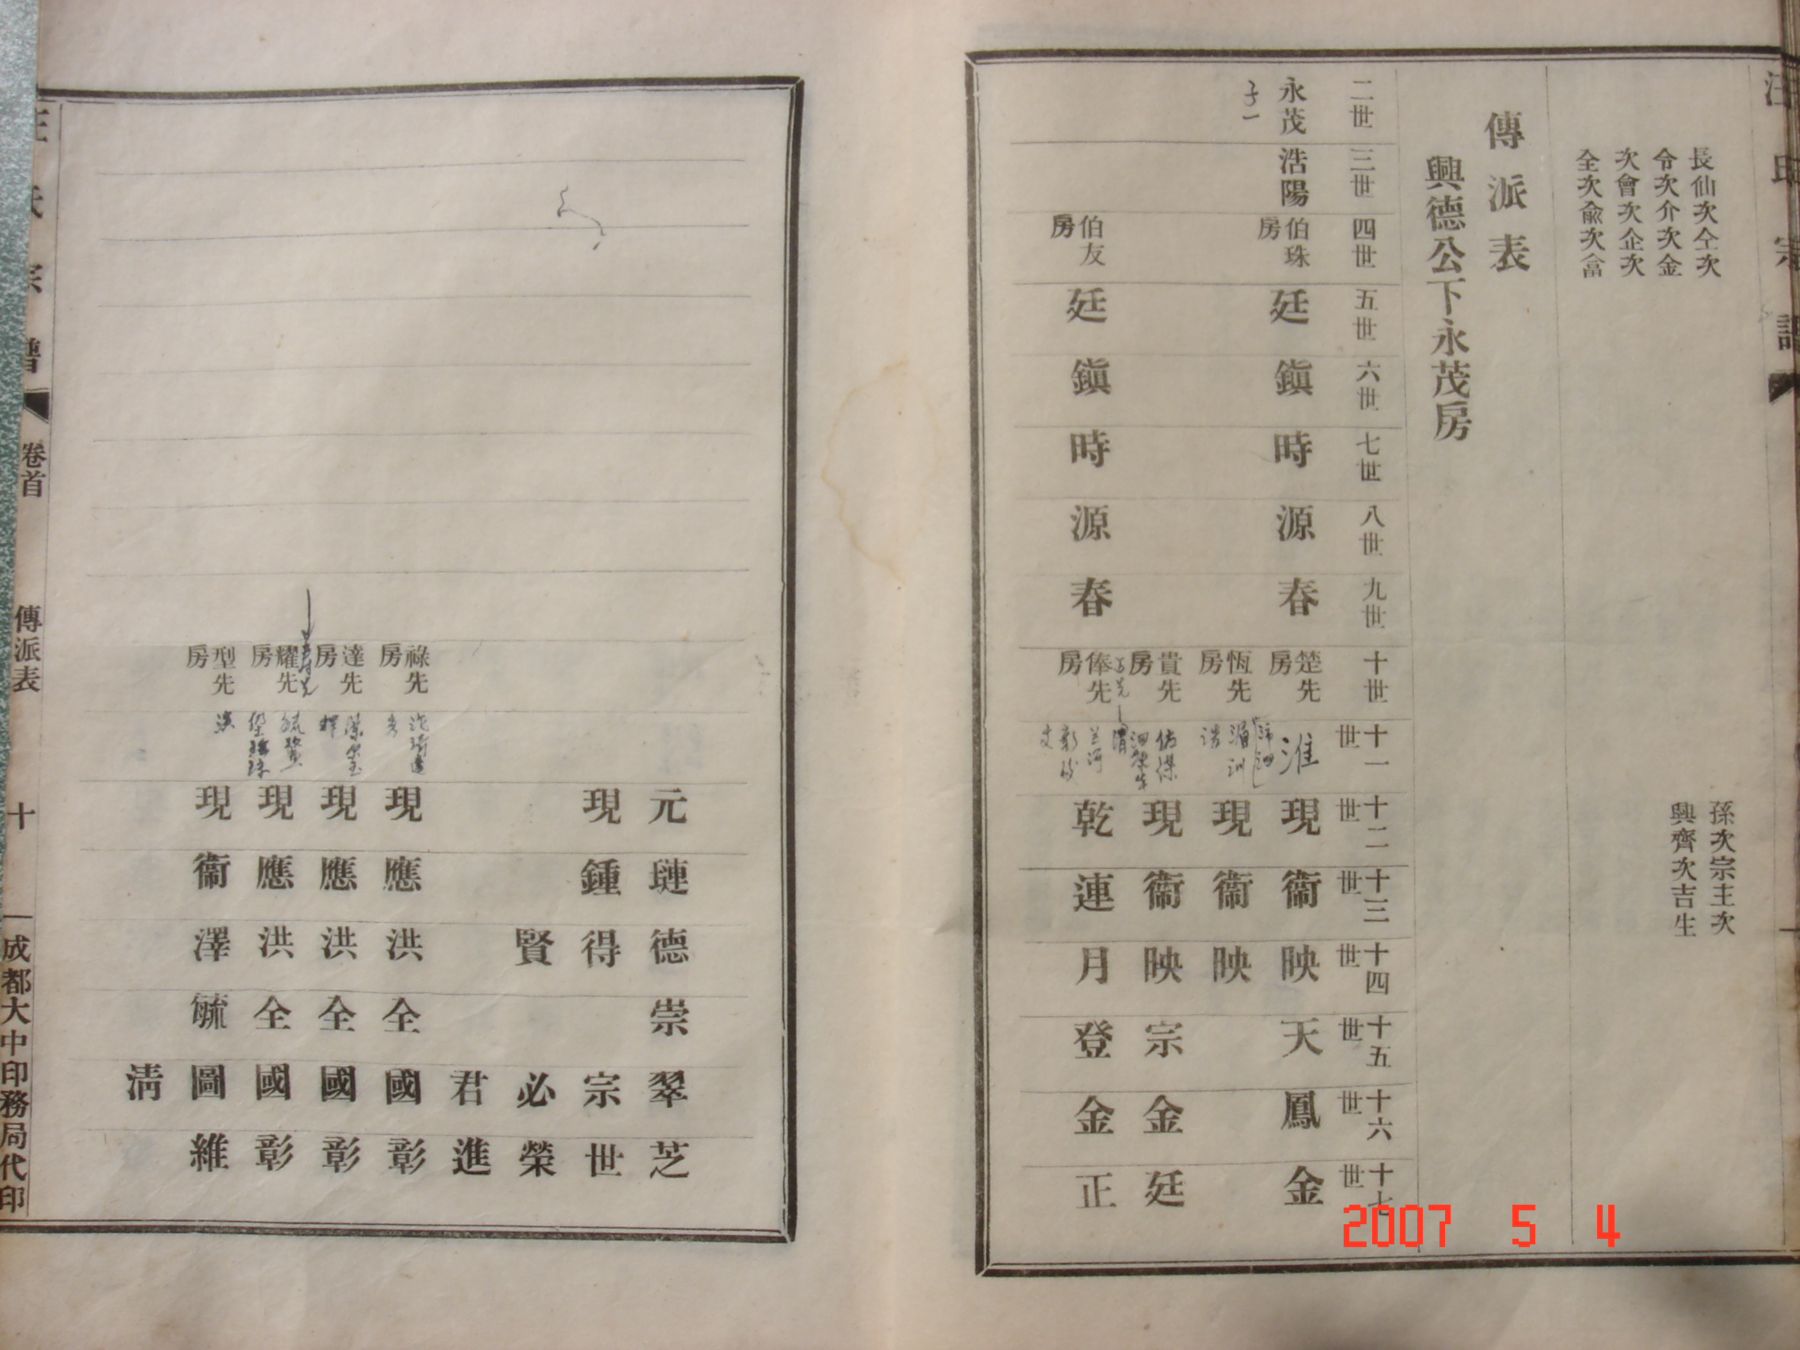 長仙次仝次
令次介次金
次會次企次
全次兪次畣
孫次宗主次
興齊次吉生
傳派表
興德公下永茂房
二世 三世 四世 五世 六世 七世 八世 九世 十世 十一世 十二世 十三世 十四世 十五世 十六世 十七世
永茂 浩陽 伯珠房 廷 鎭 時 源 春 楚先房 淮 現 衞 映 天 鳳 金
子一
恆先房 現 衞 映
貴先房 現 衞 映 宗 金 廷
伯友房 廷 鎭 時 源 春 俸先房 乾 連 月 登 金 正
元 璉 德 崇 翠 芝
現 鍾 得 宗 世
賢 必 榮
君 進
祿先房 現 應 洪 全 國 彰
達先房 現 應 洪 全 國 彰
耀先房 現 應 洪 全 國 彰
型先房 現 衞 澤 毓 圖 維
淸
汪氏宗譜 卷首 傳派表 十 成都大中印務局代印
2007 5 4